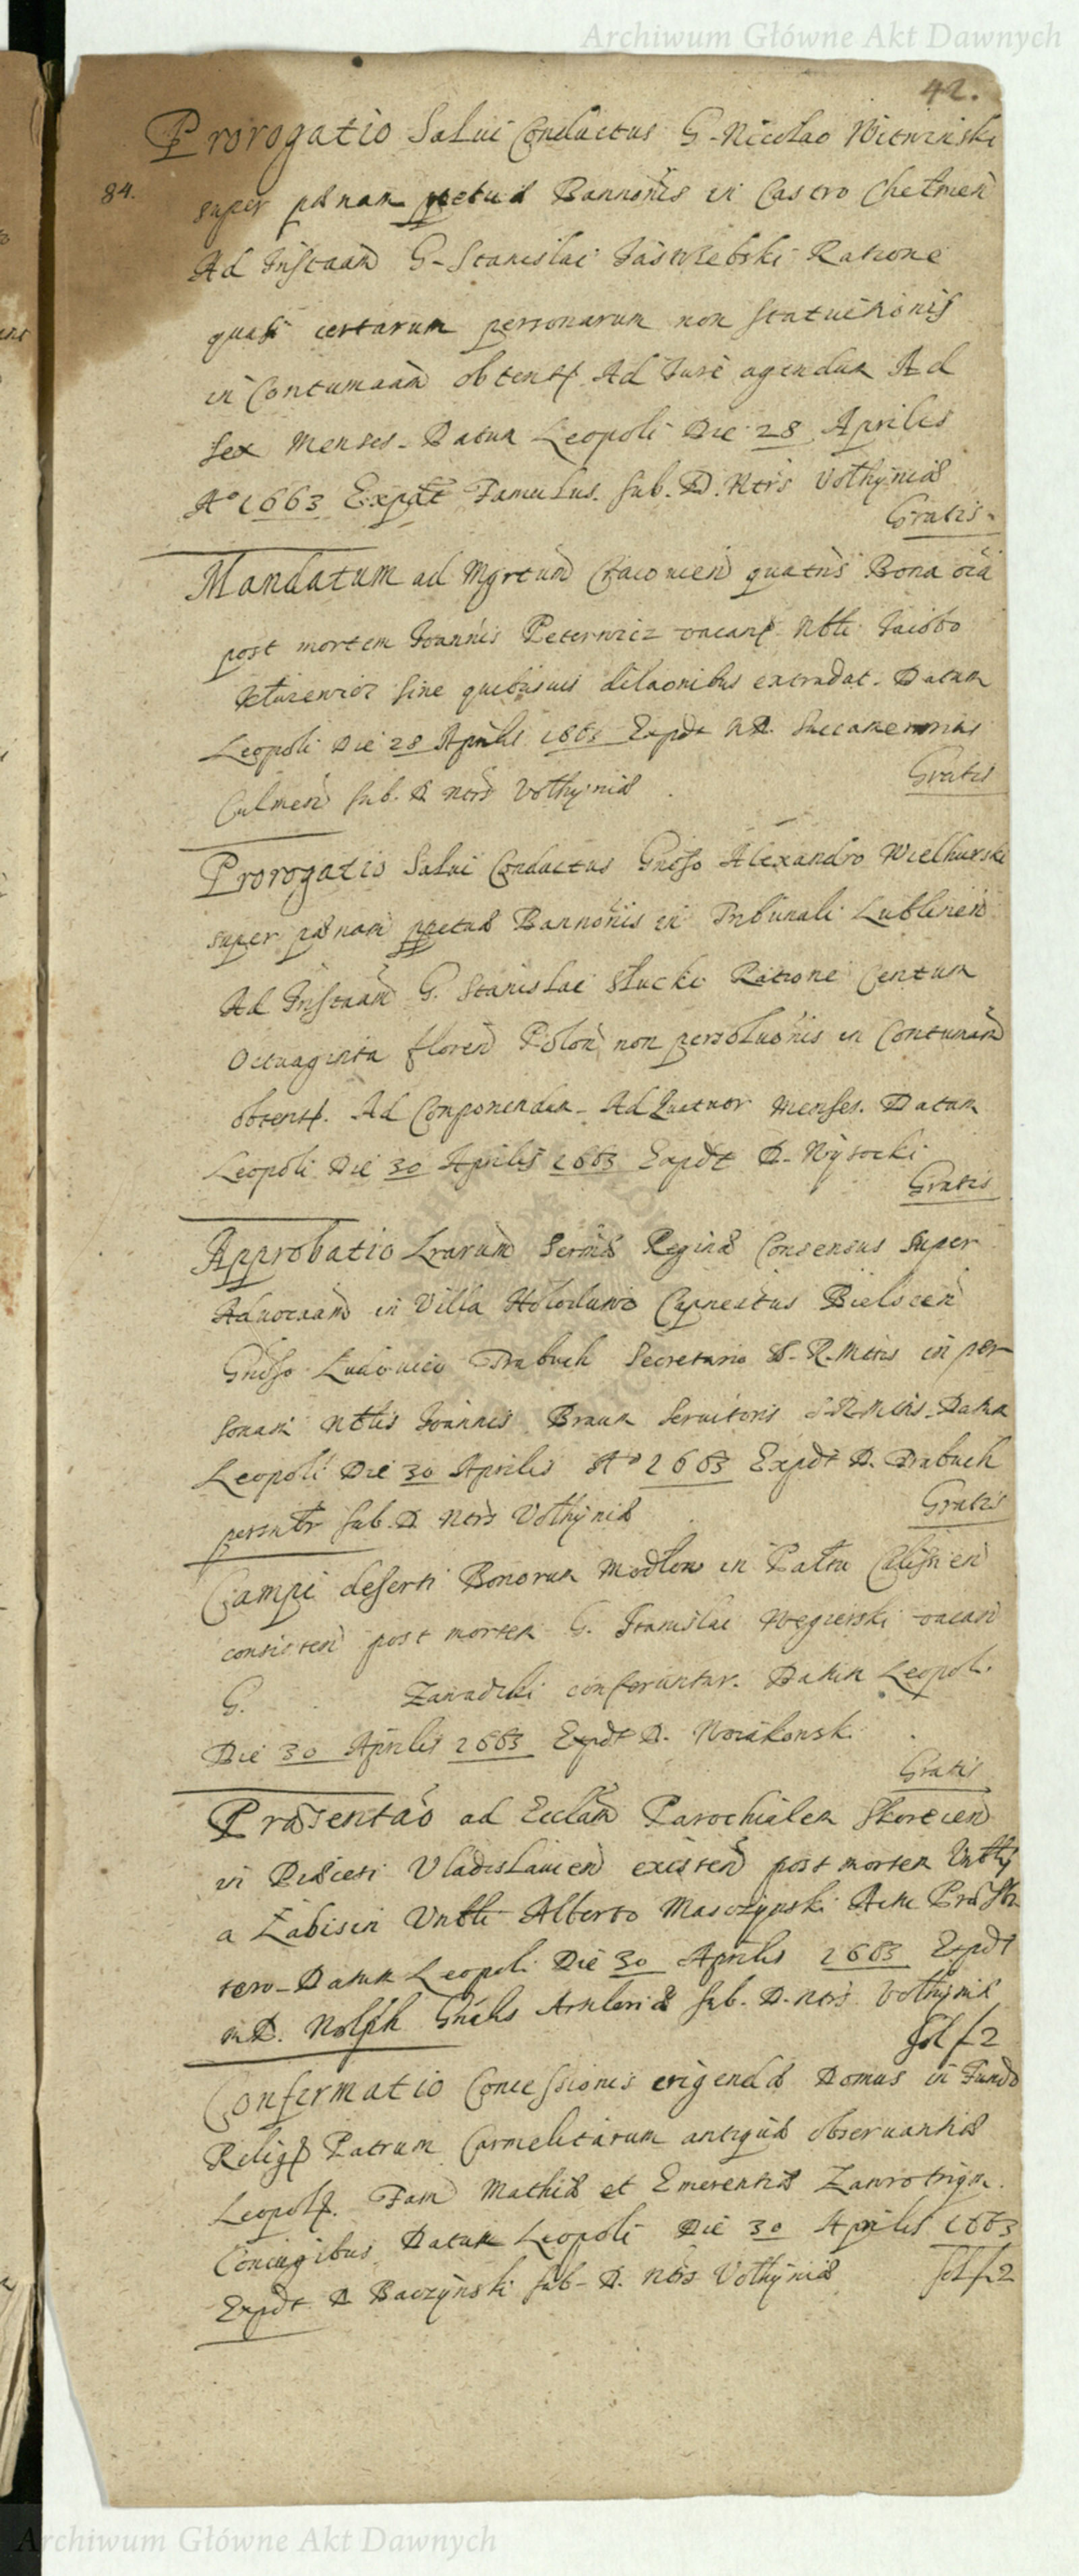 Archiwum Główne Akt Dawnych
42.
Prorogatio Salui Conductus G. Nicolao Witwinski
84.
super pænam ppetuæ Bannonis in Castro Chelmen
Ad Instaam G. Stanislai Jastrzebski Ratione
quasi certarum personarum non statuitionis
in Contumaam obtent. Ad Jure agendum Ad
sex Menses. Datum Leopoli Die 28 Aprilis
Aº 1663 Expdt Famulus. sub. D. Ntrs Volhyniæ
Gratis.
Mandatum ad Mgrtum Cracouien quatns Bona oia
post mortem Joannis Peterwicz vacan Nbli Jacobo
sine quibusuis dilaonibus extradat. Datum
Leopoli Die 28 Aprilis 1663 Expdt RD. Succamerarius
Culmen sub. D. Ntrs Volhyniæ
Gratis
Prorogatio Salui Conductus Gnoso Alexandro Wielhurski
super pænam ppetuæ Bannonis in Tribunali Lublinen
Ad Instaam G. Stanislai Słucki Ratione Centum
Octuaginta floren Polon non persoluonis in Contumaam
obtent. Ad Componendum. Ad Quatuor Menses. Datum
Leopoli Die 30 Aprilis 1663 Expdt D. Wysocki
Gratis
Approbatio Lrarum Sermæ Reginæ Consensus super
Aduocaam in Villa Hołodowo Capneatus Bielscen
Gnoso Ludouico Drabuch Secretario S. R. Mttis in per
sonam Nblis Joannis Braun Seruitoris S R Mttis. Datum
Leopoli Die 30 Aprilis Aº 1663 Expdt D. Drabuch
persnltr sub. D. Ntrs Volhyniæ
Gratis
Campi deserti Bonorum Modłow in Paltu Calissien
consisten post mortem G. Stanislai Wegierski vacan
G. Zawadzki conferuntur. Datum Leopoli.
Die 30 Aprilis 1663 Expdt D. Nowakowski
Gratis
Præsentao ad Ecclam Parochialem Skorcien
in Diæcesi Vladislauien existen post mortem Vnbly
a Łabisin Vnbli Alberto Masczynski Actu Præsby
tero. Datum Leopoli Die 30 Aprilis 1663 Expdt
mD. Wolph Gnalis Arteleriæ sub. D. Ntrs Volhyniæ
sol f 2
Confirmatio Concessionis erigendæ Domus in Fundo
Relig Patrum Carmelitarum antiquæ obseruantiæ
Leopol. Fam Mathiæ et Emerentiæ
Coniugibus. Datum Leopoli Die 30 Aprilis 1663
Expdt D Baczynski sub. D. Ntrs Volhyniæ
sol f 2
Archiwum Główne Akt Dawnych